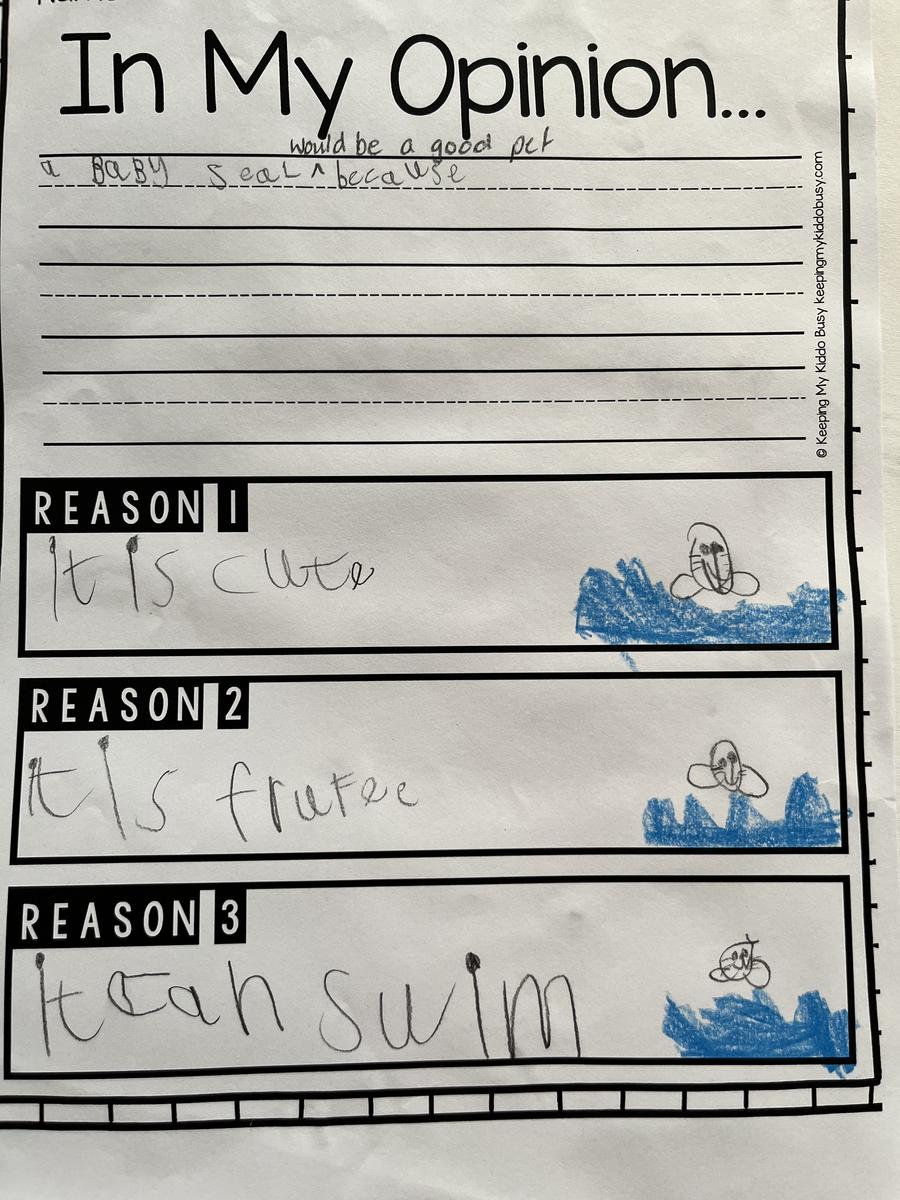 In My Opinion...
would be a good pet
a BaBy SeaL ^ because
© Keeping My Kiddo Busy keepingmykiddobusy.com
REASON 1
It Is cute
REASON 2
It Is frutee
REASON 3
It can swim